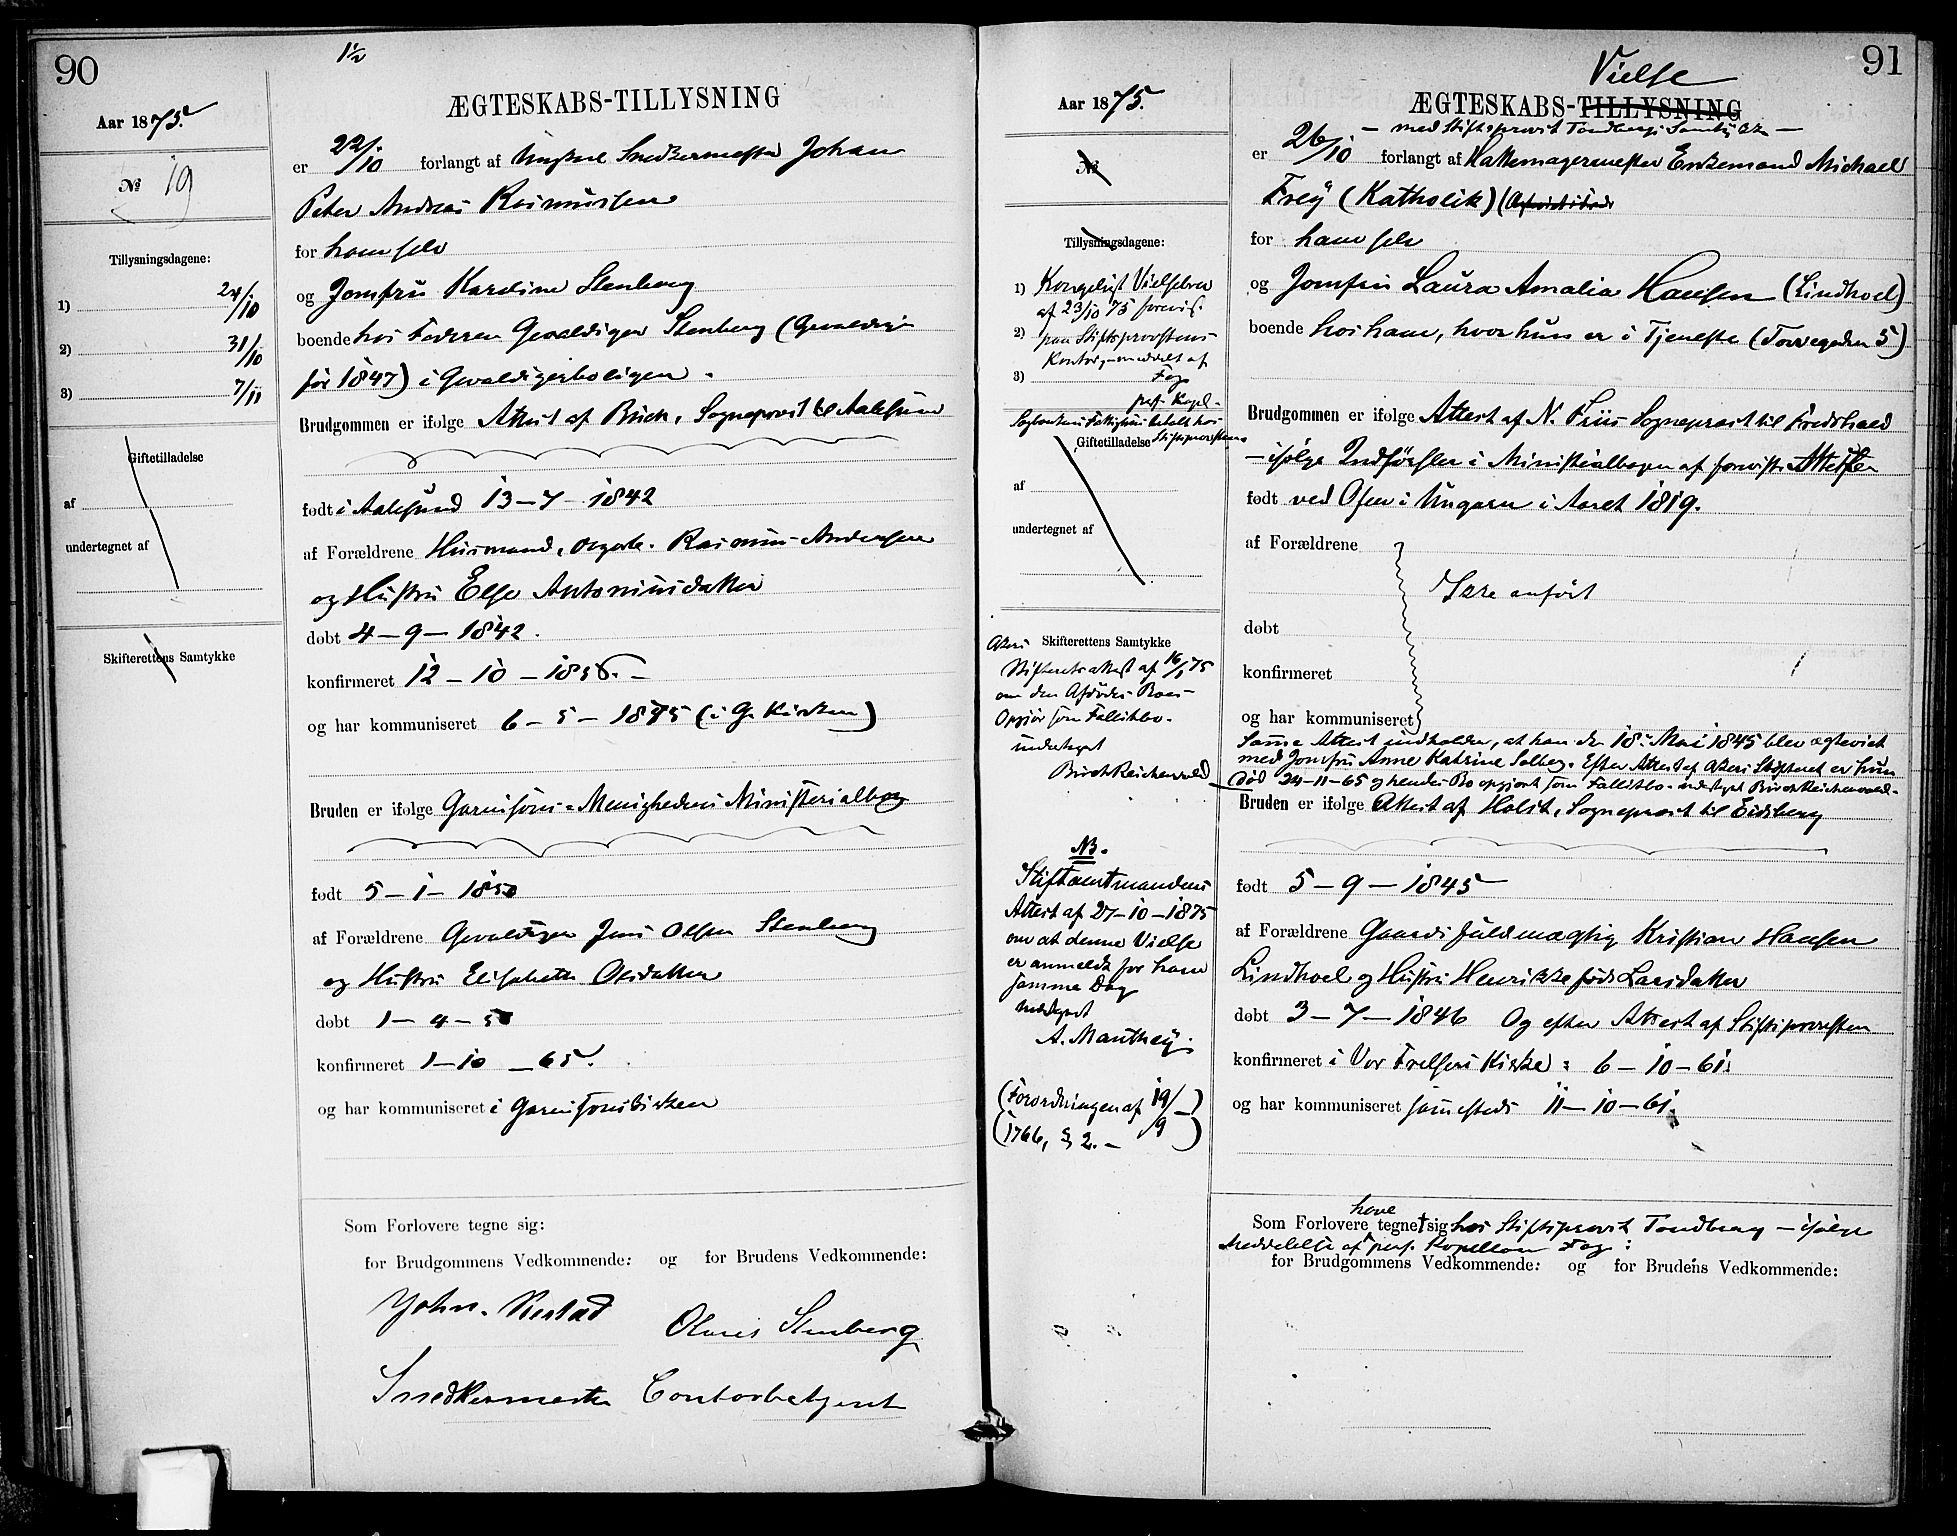 90
1½
Aar 1875.
№ 19
Tillysningsdagene:
1) 24/10
2) 31/10
3) 7/11
Giftetilladelse
af
undertegnet af
Skifterettens Samtykke
ÆGTESKABS-TILLYSNING
er 22/10 forlangt af Ungkarl Snedkermester Johan
Peter Andreas Rasmussen
for ham selv
og Jomfru Karoline Stenberg
boende hos Faderen Gevaldiger Stenberg (Gevaldiger
før 1847) i Gevaldigerboligen.
Brudgommen er ifølge Attest af Buck, Sogneprest til Aalesund
født i Aalesund 13-7-1842
af Forældrene Husmand, Rasmus Andersen
og Hustru Else Antoniusdatter
døbt 4-9-1842.
konfirmeret 12-10-1856.
og har kommuniseret 6-5-1875 (i G. Kirken)
Bruden er ifølge Garnisons-Menighedens Ministerialbog
født 5-1-1850
af Forældrene Gevaldiger Jens Olsen Stenberg
og Hustru Elisabeth Olsdatter
døbt 1-4-50
konfirmeret 1-10-65.
og har kommuniseret i Garnisonskirken
Som Forlovere tegne sig:
for Brudgommens Vedkommende: og for Brudens Vedkommende:
Olaus Stenberg
Snedkermester Contorbetjent
91
Aar 1875.
№
Tillysningsdagene:
1) Kongeligt Vielsebrev
af 23/10 75 forevist
2) paa Stiftsprovstens
Kontor, meddelt af
3) Fog
pers. Kapel.
Giftetilladelse Stiftsprovsten
af
undertegnet af
Akers Skifterettens Samtykke
Skifterets attest af 16/1 75
om den Afdødes Boes
Opgjør som Fallitbo.
undertegnet
Birch Reichenwald
NB.
Stiftamtmandens
Attest af 27-10-1875
om at denne Vielse
er anmeldt for ham
samme Dag
undertegnet
A. Manthey.
(Forordningen af 19/9
1766, § 2.-)
Vielse
ÆGTESKABS-TILLYSNING
- med Stiftsprovst Tandbergs Samtykke -
er 26/10 forlangt af Hattemagermester Enkemand Michael
Frey (Katholik)
for ham selv
og Jomfru Laura Amalia Hansen (Lindhoel)
boende hos ham, hvor hun er i Tjeneste (Torvegaden 5)
Brudgommen er ifølge Attest af N. Friis Sogneprest til Fredshald
- ifølge Indførsler i Ministerialbogen af foreviste Attester
født ved Ofen i Ungarn i Aaret 1819.
af Forældrene
Ikke anført
døbt
konfirmeret
og har kommuniseret
Samme Attest indholder, at han den 18. Mai 1845 blev ægteviet
med Jomfru Anne Katrine Solberg. Efter Attest af Akers Skifteret er hun
død 24-11-65 og hendes Bo opgjort som Fallitbo - undertegnet Birch Reichenwald -
Bruden er ifølge Attest af Holst, Sogneprest til Eidsberg
født 5-9-1845
af Forældrene Gaardsfuldmægtig Kristian Hansen
Lindhoel og Hustru Henrikke født Larsdatter
døbt 3-7-1846 Og efter Attest af Stiftsprovsten
konfirmeret i Vor Frelsers Kirke: 6-10-61.
og har kommuniseret sammesteds 11-10-61.
Som Forlovere have tegnet sig hos Stiftsprovst Tandberg - ifølge
Meddelelse af pers. Kapellan Fog:
for Brudgommens Vedkommende: og for Brudens Vedkommende: